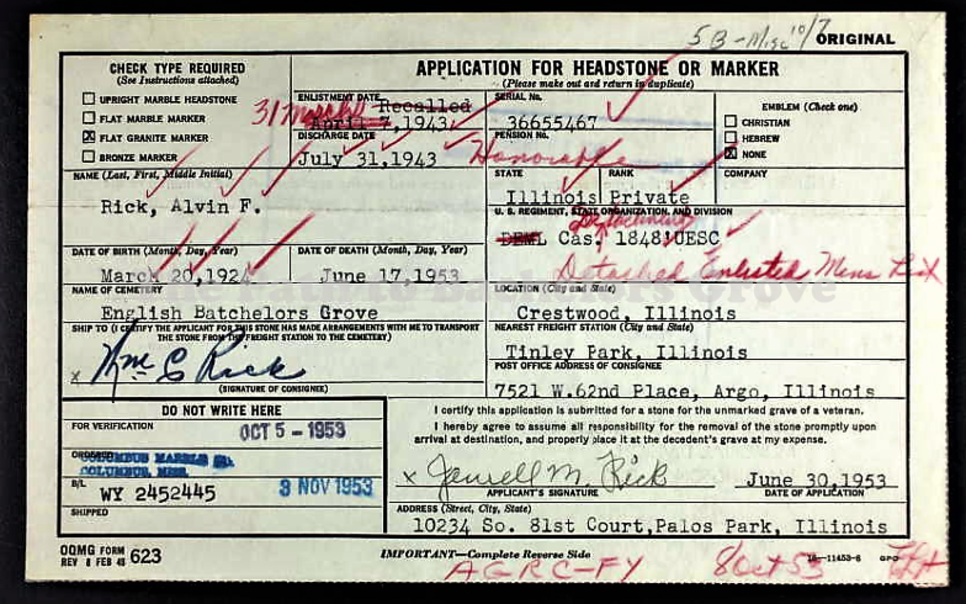 5 B - Misc 10/7
ORIGINAL
CHECK TYPE REQUIRED
(See Instructions attached)
UPRIGHT MARBLE HEADSTONE
FLAT MARBLE MARKER
X FLAT GRANITE MARKER
BRONZE MARKER
APPLICATION FOR HEADSTONE OR MARKER
(Please make out and return in duplicate)
ENLISTMENT DATE
Recalled
31 March
April 7, 1943
DISCHARGE DATE
July 31, 1943
Honorable
SERIAL No.
36655467
PENSION No.
EMBLEM (Check one)
CHRISTIAN
HEBREW
X NONE
NAME (Last, First, Middle Initial)
Rick, Alvin F.
STATE
Illinois
RANK
Private
COMPANY
U. S. REGIMENT, STATE ORGANIZATION, AND DIVISION
DEML Cas. 1848 UESC
Detached Enlisted Mens List
DATE OF BIRTH (Month, Day, Year)
March 20, 1924
DATE OF DEATH (Month, Day, Year)
June 17, 1953
NAME OF CEMETERY
English Batchelors Grove
LOCATION (City and State)
Crestwood, Illinois
Batchelors Grove
SHIP TO (I CERTIFY THE APPLICANT FOR THIS STONE HAS MADE ARRANGEMENTS WITH ME TO TRANSPORT
THE STONE FROM THE FREIGHT STATION TO THE CEMETERY)
x Wm C Rick
(SIGNATURE OF CONSIGNEE)
NEAREST FREIGHT STATION (City and State)
Tinley Park, Illinois
POST OFFICE ADDRESS OF CONSIGNEE
7521 W.62nd Place, Argo, Illinois
DO NOT WRITE HERE
FOR VERIFICATION
OCT 5 - 1953
ORDERED
COLUMBUS MARBLE
COLUMBUS, MISS.
B/L
WY 2452445
3 NOV 1953
SHIPPED
I certify this application is submitted for a stone for the unmarked grave of a veteran.
I hereby agree to assume all responsibility for the removal of the stone promptly upon
arrival at destination, and properly place it at the decedent's grave at my expense.
x Jewell M. Rick
June 30, 1953
APPLICANT'S SIGNATURE
DATE OF APPLICATION
ADDRESS (Street, City, State)
10234 So. 81st Court, Palos Park, Illinois
OQMG FORM 623
REV 8 FEB 48
IMPORTANT—Complete Reverse Side
16—11453-6 GPO
AGRC-FY
8 Oct 53